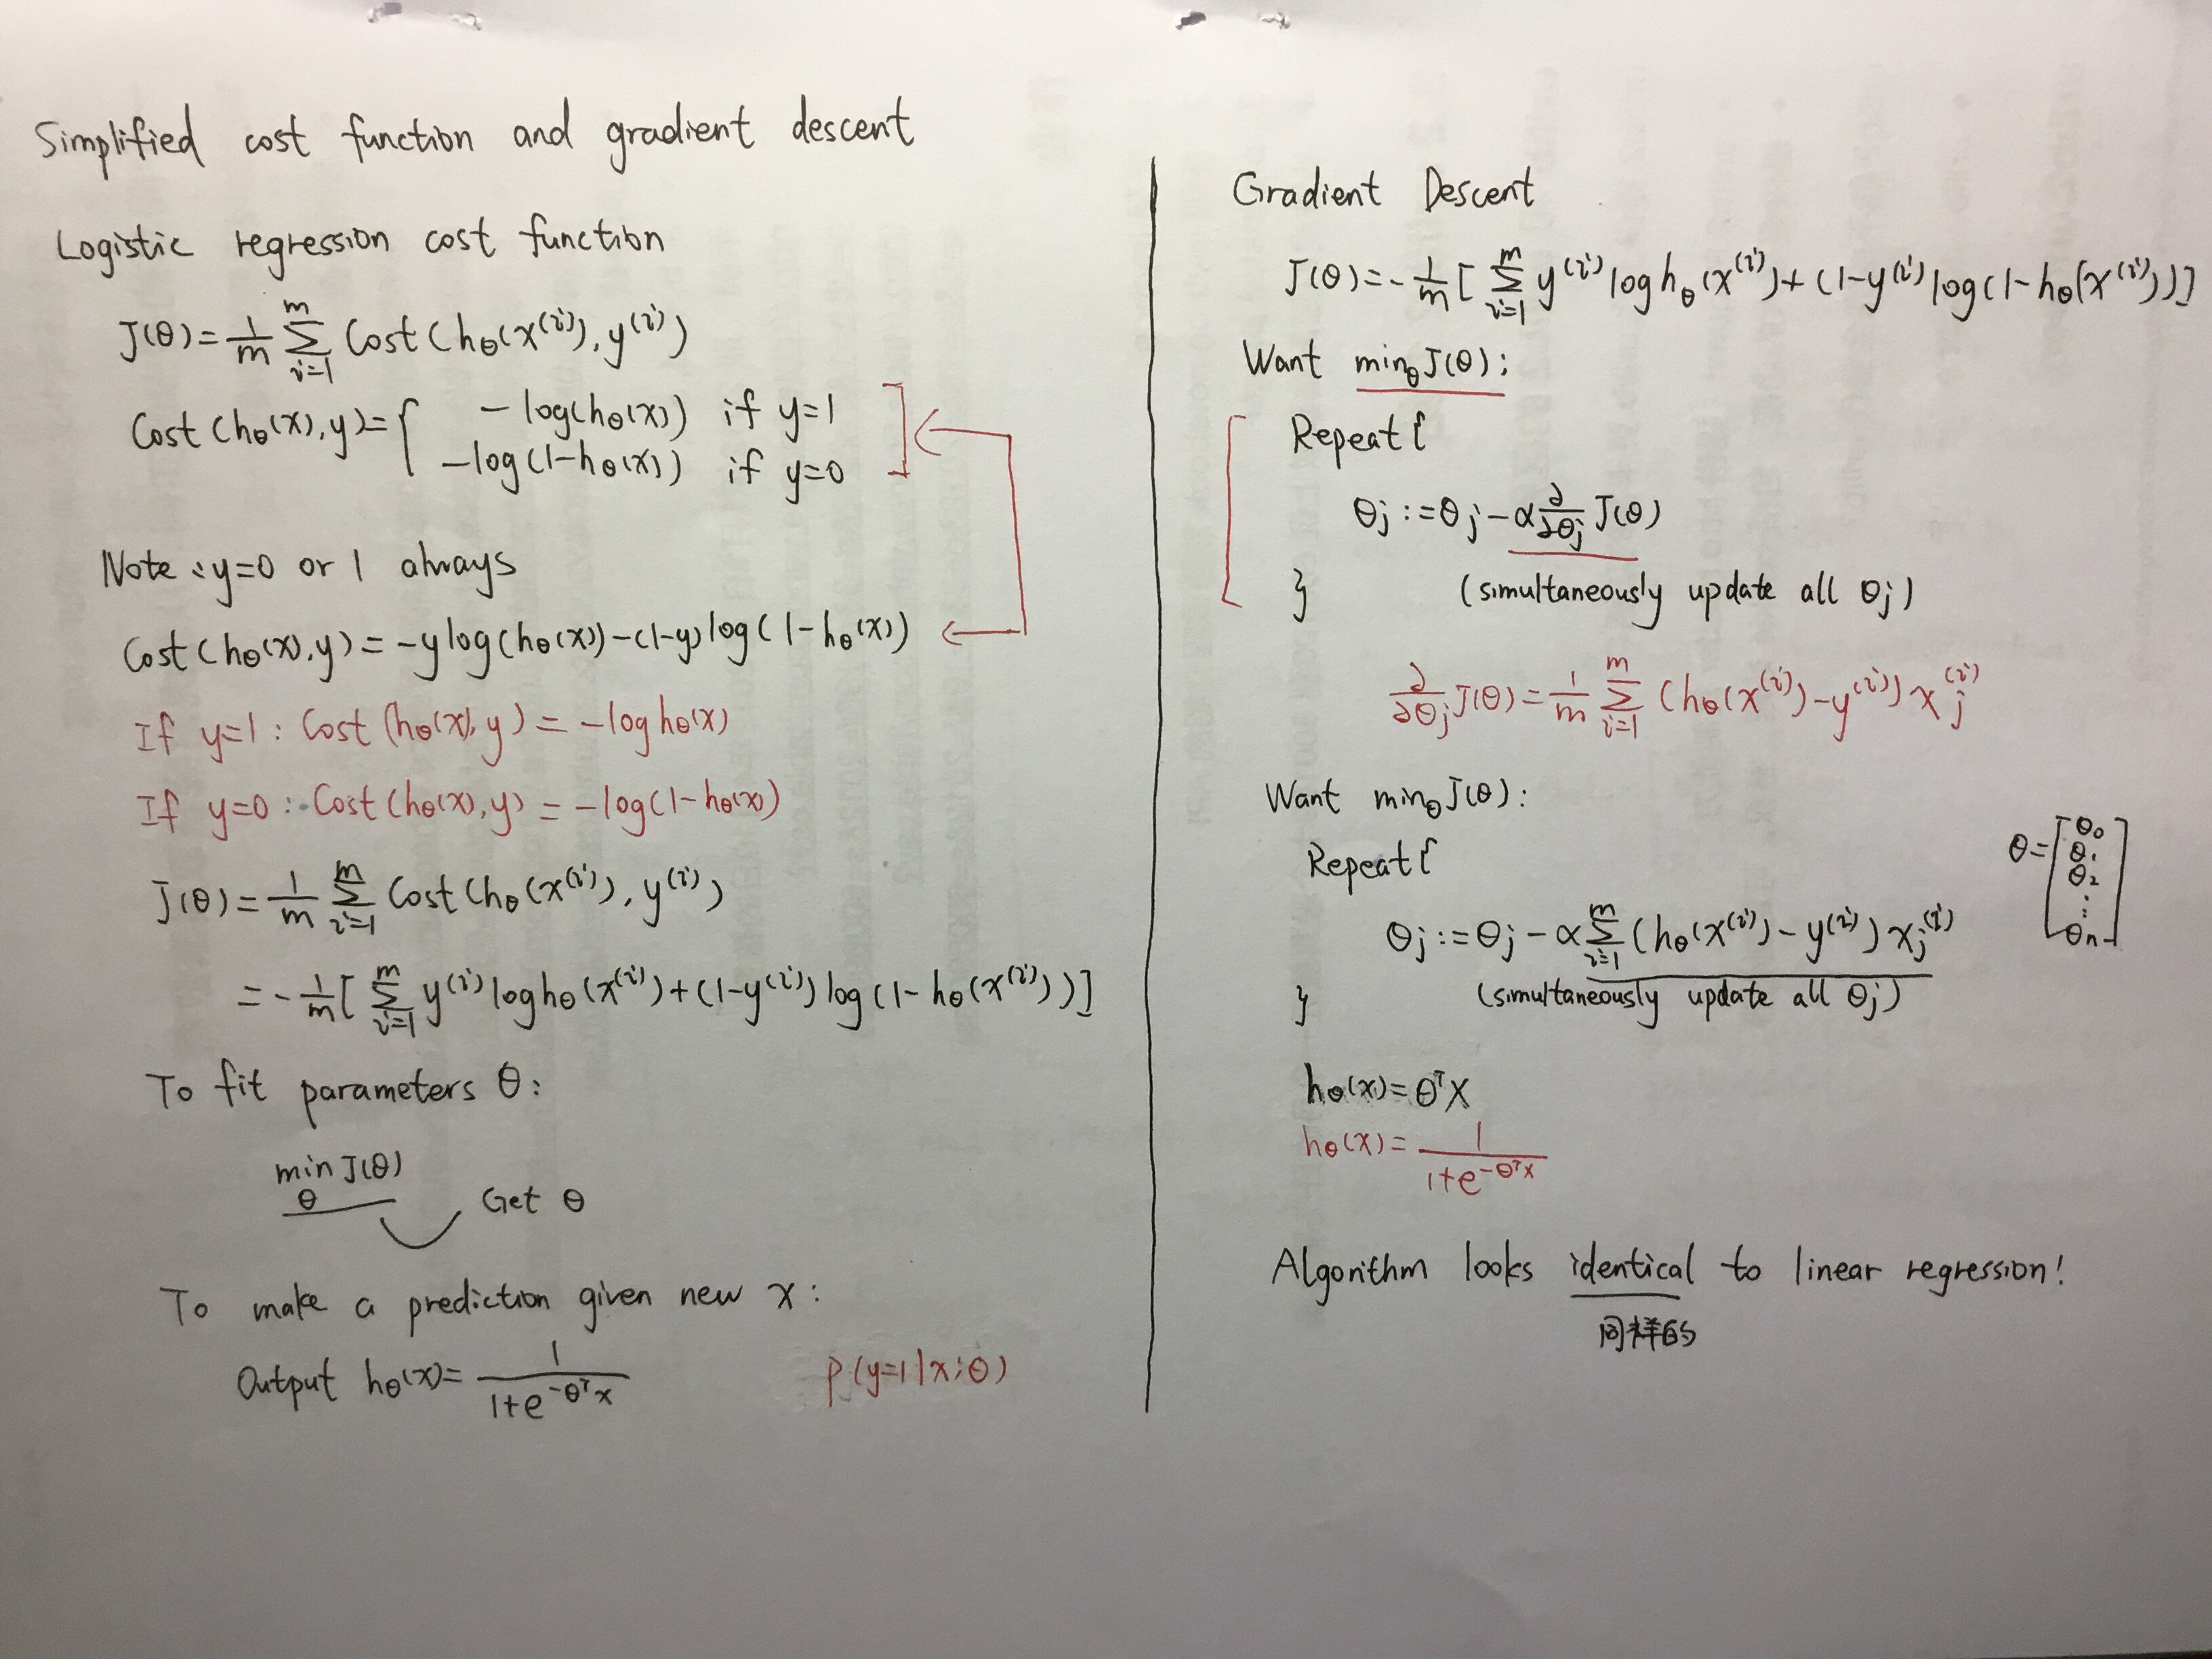 Simplified cost function and gradient descent
Logistic regression cost function
J(θ)=1/m Σ_{i=1}^{m} Cost(hθ(x^(i)),y^(i))
Cost(hθ(x),y)={ -log(hθ(x)) if y=1
-log(1-hθ(x)) if y=0
Note: y=0 or 1 always
Cost(hθ(x),y)=-ylog(hθ(x))-(1-y)log(1-hθ(x))
If y=1: Cost(hθ(x),y)=-loghθ(x)
If y=0: Cost(hθ(x),y)=-log(1-hθ(x))
J(θ)=1/m Σ_{i=1}^{m} Cost(hθ(x^(i)),y^(i))
=-1/m[Σ_{i=1}^{m} y^(i)loghθ(x^(i))+(1-y^(i))log(1-hθ(x^(i)))]
To fit parameters θ:
min_θ J(θ)
Get θ
To make a prediction given new x:
Output hθ(x)=1/(1+e^{-θ^T x}) P(y=1|x;θ)
Gradient Descent
J(θ)=-1/m[Σ_{i=1}^{m} y^(i)loghθ(x^(i))+(1-y^(i)log(1-hθ(x^(i)))]
Want min_θ J(θ):
Repeat{
θj:=θj-α∂/∂θj J(θ)
} (simultaneously update all θj)
∂/∂θj J(θ)=1/m Σ_{i=1}^{m} (hθ(x^(i))-y^(i))xj^(i)
Want min_θ J(θ):
Repeat{
θ=[θ0 θ1 θ2 ⋮ θn]
θj:=θj-αΣ_{i=1}^{m} (hθ(x^(i))-y^(i))xj^(i)
} (simultaneously update all θj)
hθ(x)=θ^T X
hθ(x)=1/(1+e^{-θ^T x})
Algorithm looks identical to linear regression!
同样的